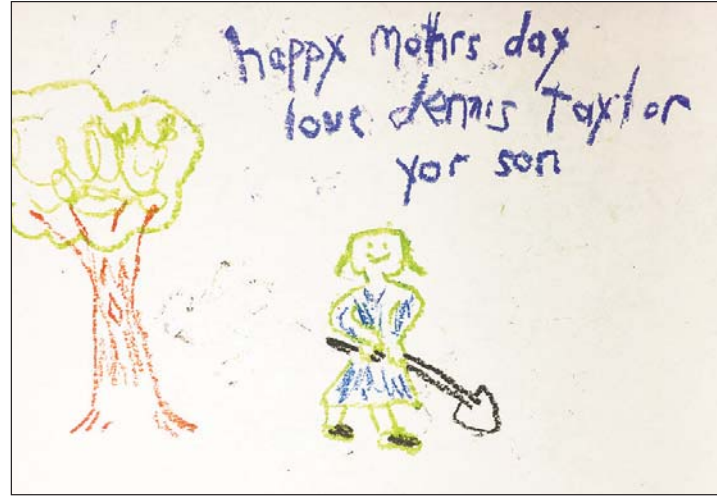 happy mothrs day
love dennis Taylor
yor son